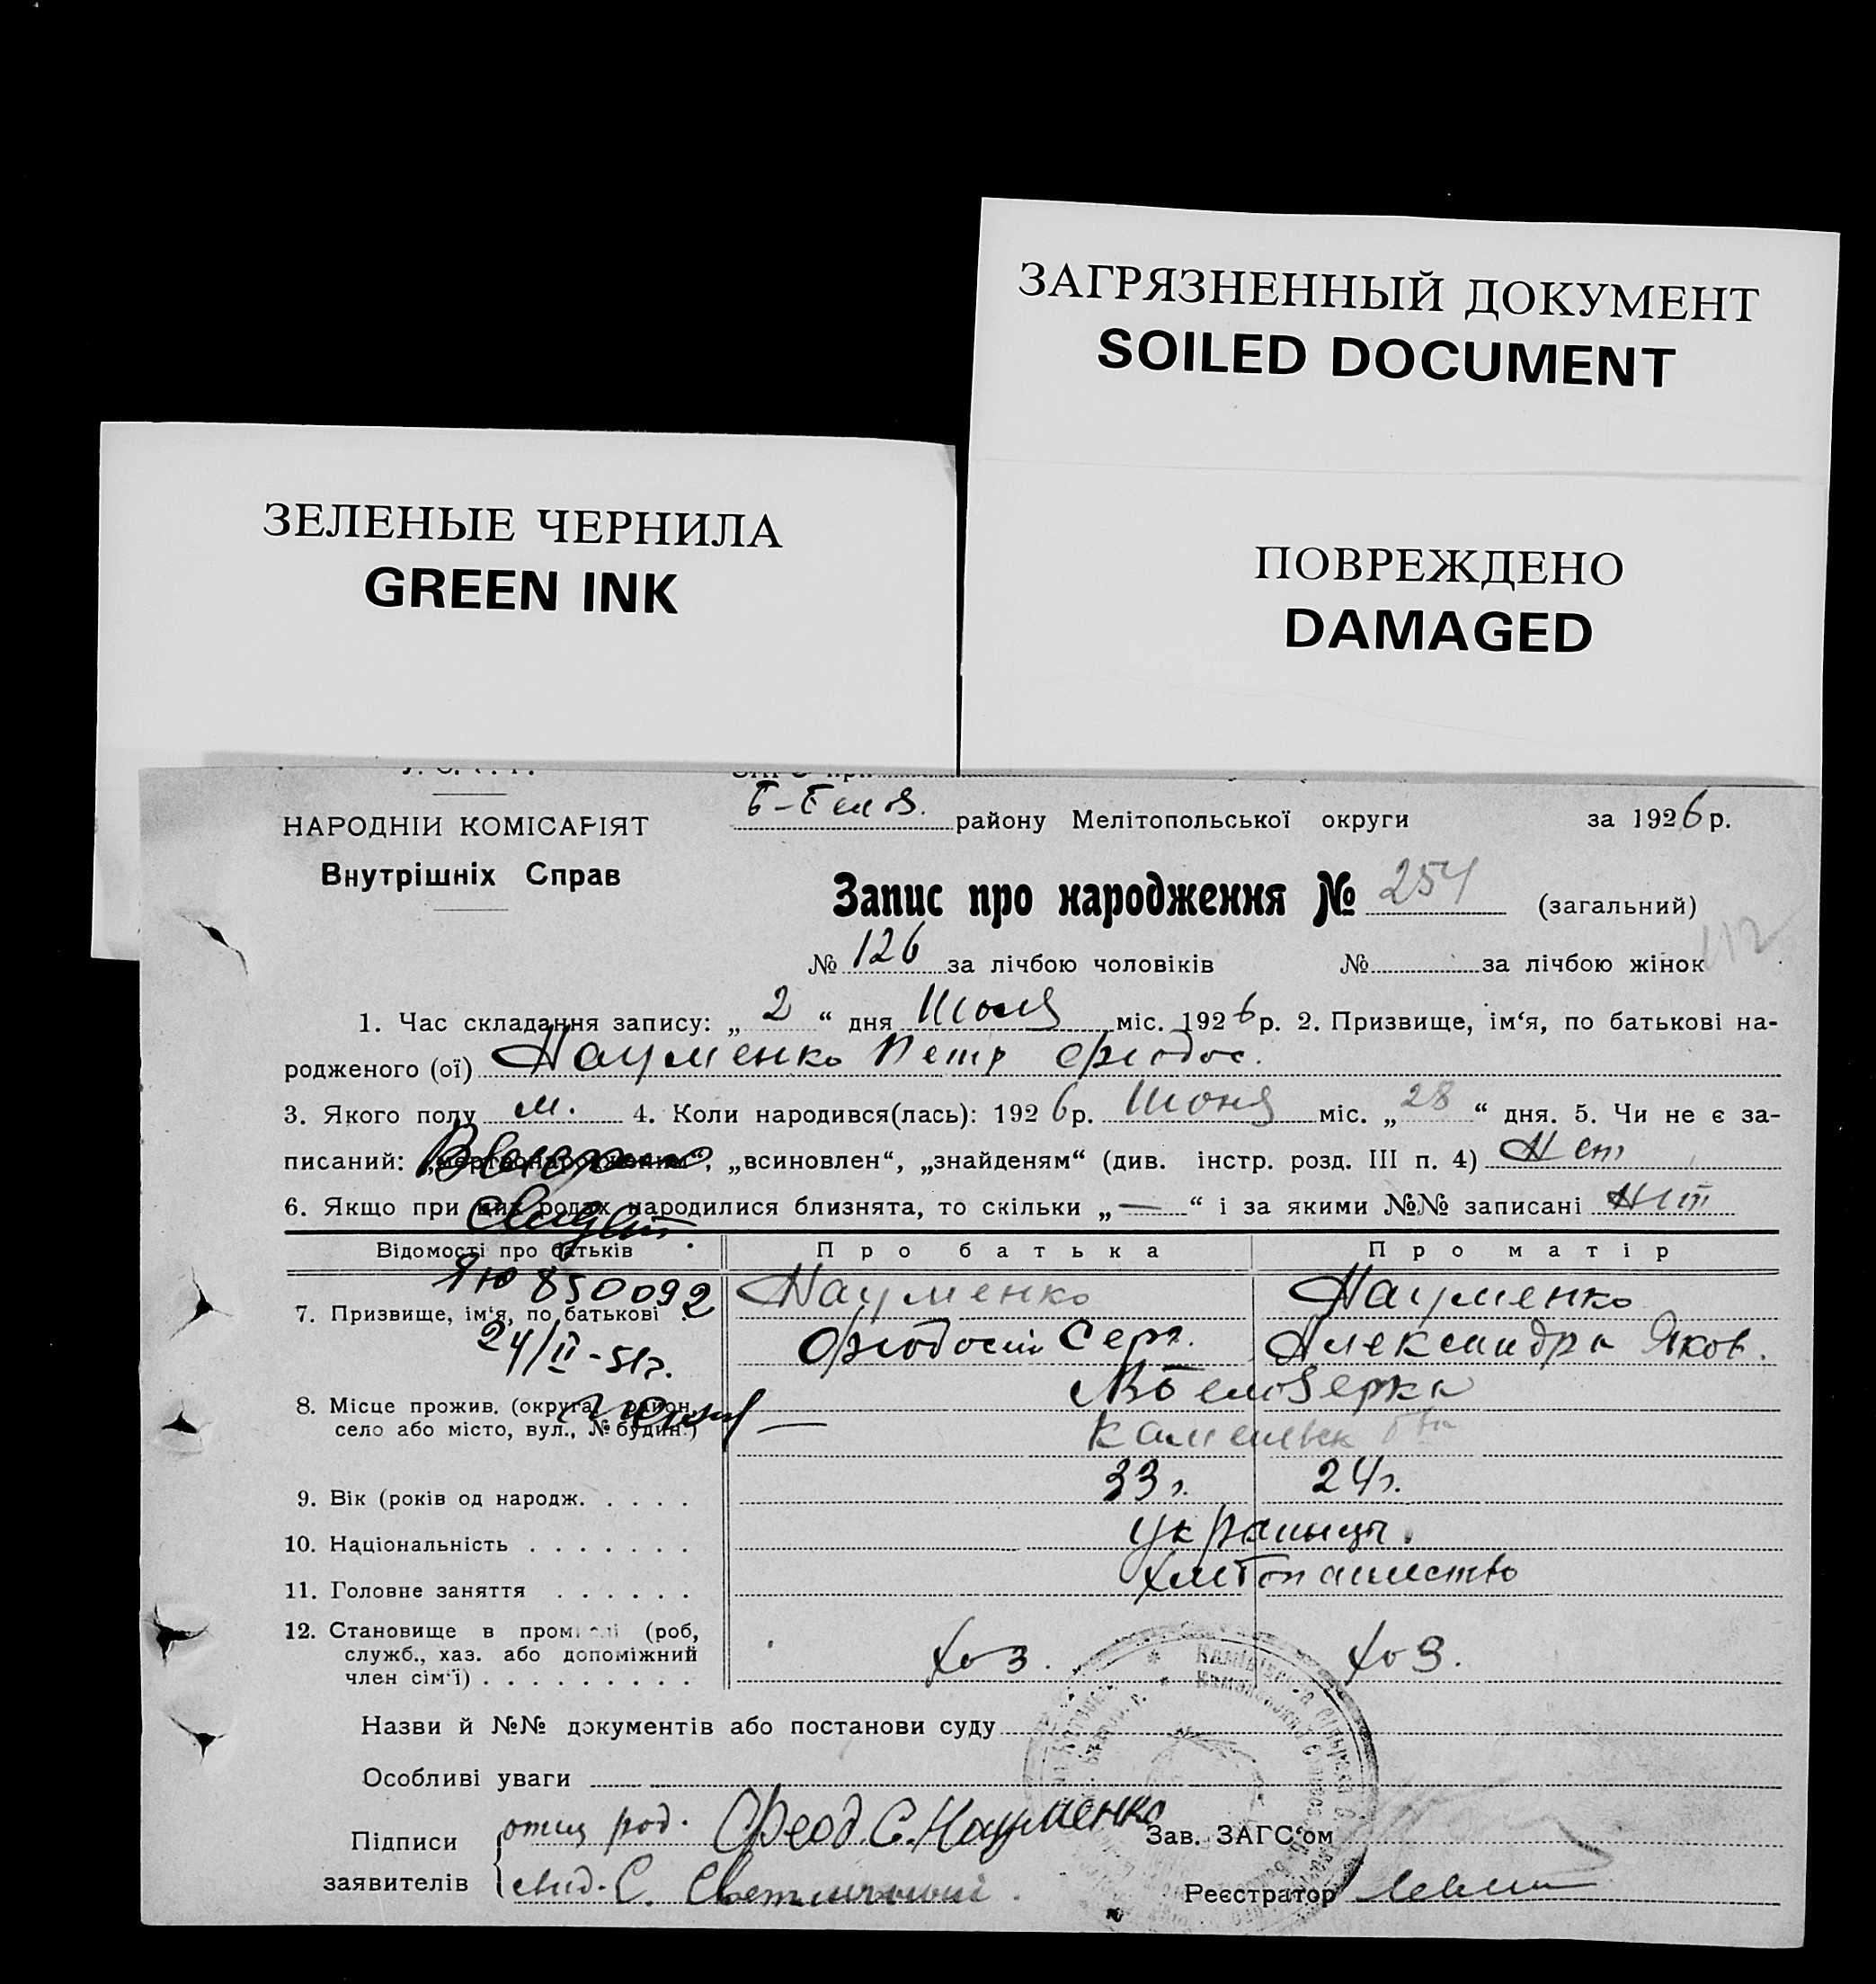 ЗАГРЯЗНЕННЫЙ ДОКУМЕНТ
SOILED DOCUMENT
ЗЕЛЕНЫЕ ЧЕРНИЛА
GREEN INK
ПОВРЕЖДЕНО
DAMAGED
НАРОДНІЙ КОМІСАРІЯТ
Внутрішніх Справ
району Мелітопольської округи за 1926 р.
Запис про народження № 254 (загальний)
112
№ 126 за лічбою чоловіків № за лічбою жінок
1. Час складання запису: „ 2 “ дня Июля міс. 1926 р. 2. Призвище, ім‘я, по батькові на-
родженого (ої) Науменко Петр Феодос.
3. Якого полу м. 4. Коли народився(лась): 1926 р. Июня міс. „ 28 “ дня. 5. Чи не є за-
писаний: „мертвонародженим“, „всиновлен“, „знайденям“ (див. інстр. розд. III п. 4) Нет
6. Якщо при цих родах народилися близнята, то скільки „ — “ і за якими №№ записані нет
Відомості про батьків Про батька Про матір
ЯЮ 850092
7. Призвище, ім‘я, по батькові Науменко Науменко
24/II-51г.
Феодосий Серг. Александра Яков.
8. Місце прожив. (округа, район,
село або місто, вул., № будин.)
9. Вік (років од народж. 33 г. 24 г.
10. Національність украинцы.
11. Головне заняття хлебопашество
12. Становище в промислі (роб,
служб., хаз. або допоміжний
член сім‘ї) хоз. хоз.
Назви й №№ документів або постанови суду
Особливі уваги
Підписи
заявителів
отец род. Феод. С. Науменко
Зав. ЗАГС‘ом
свид. С.
Реєстратор